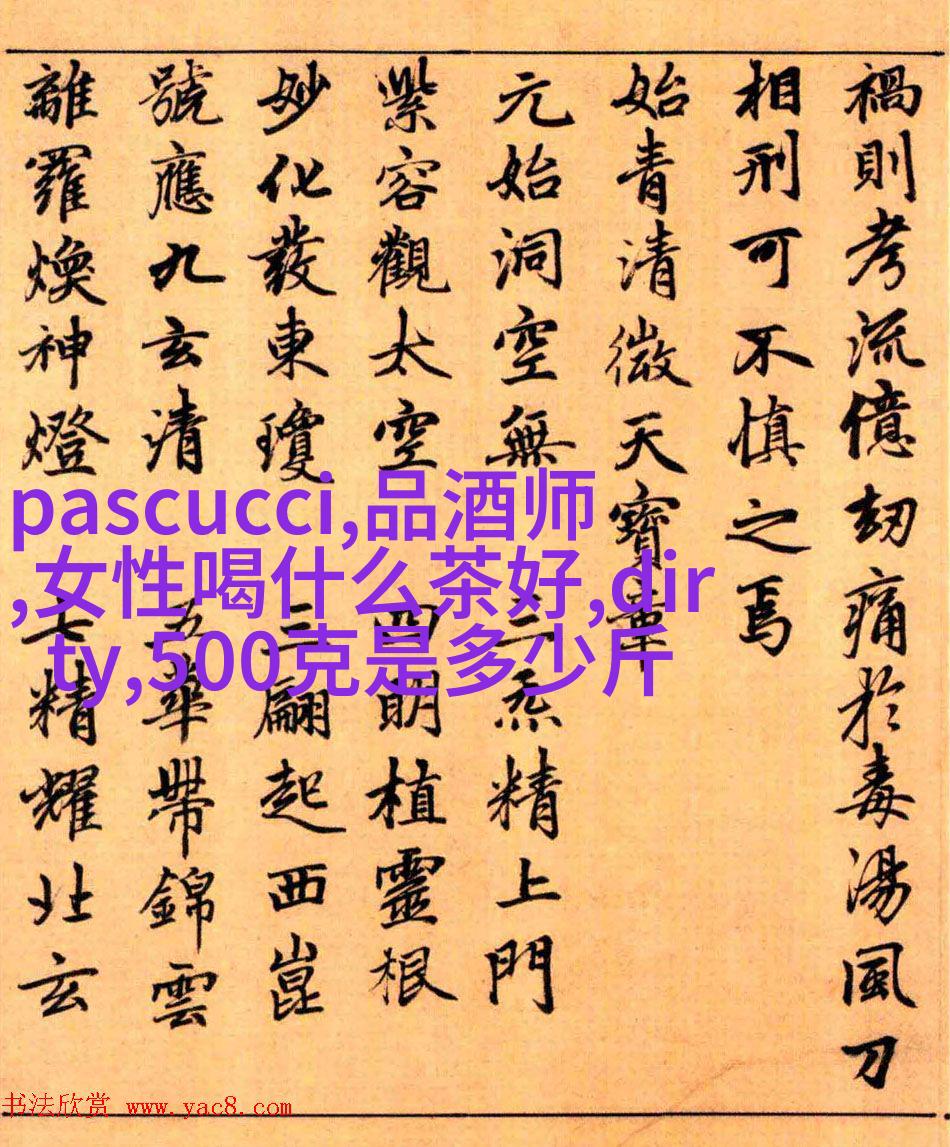 禍則考流億劫痛於毒湯風刀
相刑可不慎之焉
始青清微天寶章
元始洞空無 三炁精上門
紫容觀太空 四明植靈根
妙化發東瓊 三翩起西崑
號應九玄清 五華帶錦雲
離羅煥神燈 七精耀北玄
pascucci,品酒师
,女性喝什么茶好,dir
ty,500克是多少斤
书法欣赏 www.yac8.com